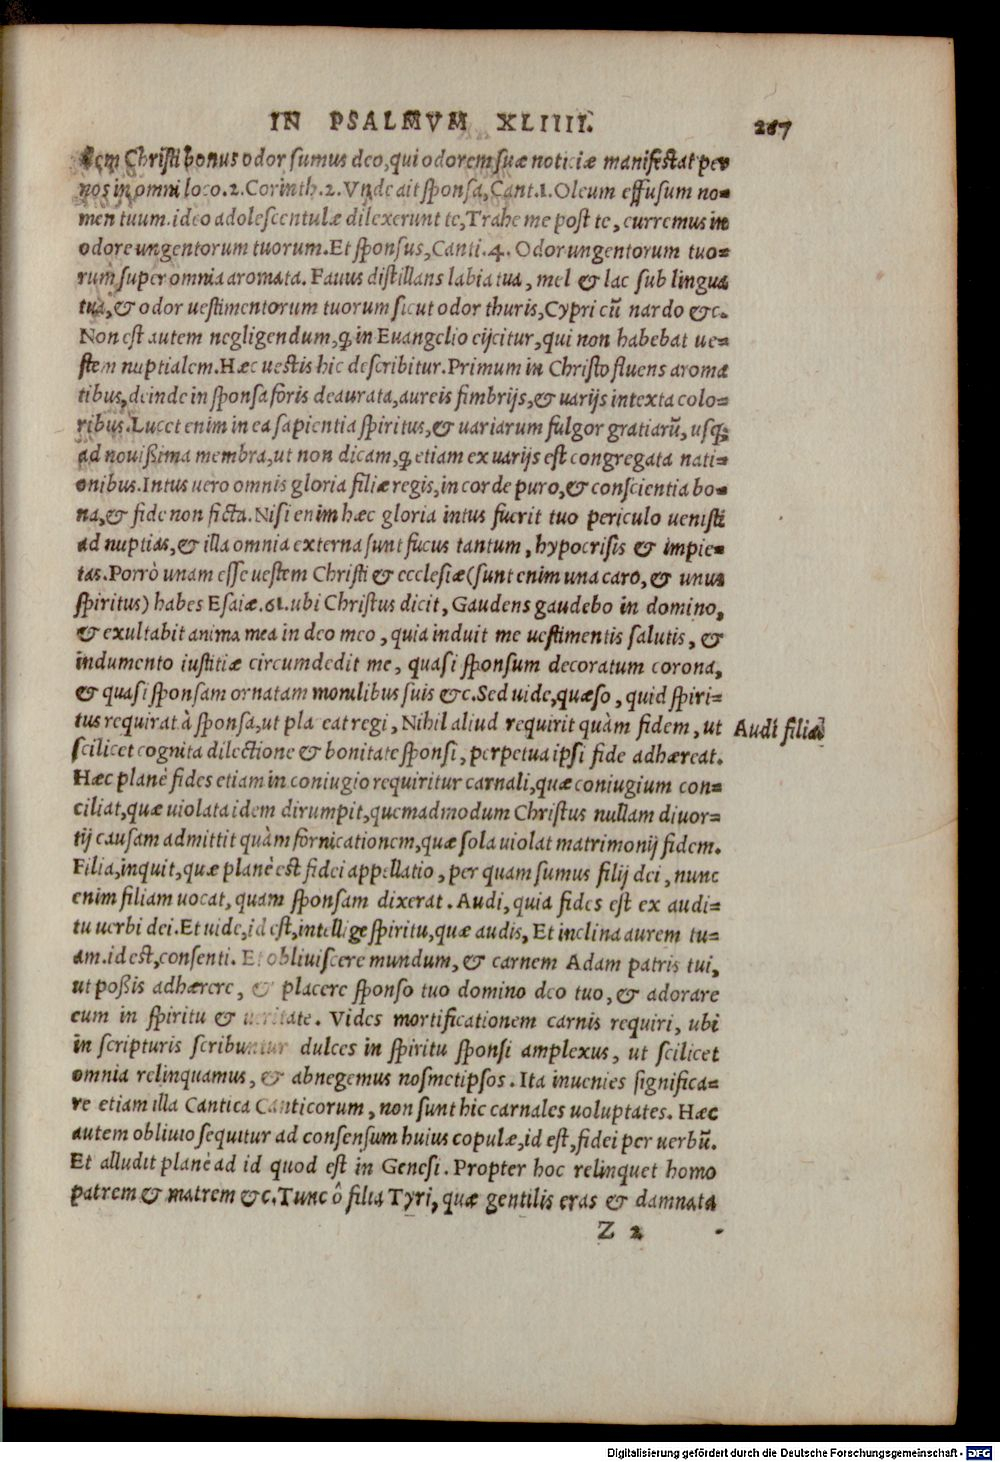 IN PSALMVM XLIIII. 267
dem Christi bonus odor sumus deo, qui odorem suæ noticiæ manifestat per
nos in omni loco. 2. Corinth. 2. Vnde ait sponsa, Cant. 1. Oleum effusum no=
men tuum. ideo adolescentulæ dilexerunt te, Trahe me post te, curremus in
odore ungentorum tuorum. Et sponsus, Canti. 4. Odor ungentorum tuo=
rum super omnia aromata. Fauus distillans labia tua, mel & lac sub lingua
tua, & odor uestimentorum tuorum sicut odor thuris, Cypri cū nardo &c.
Non est autem negligendum, ꝙ in Euangelio eijcitur, qui non habebat ue=
stem nuptialem. Hæc uestis hic describitur. Primum in Christo fluens aroma
tibus, deinde in sponsa foris deaurata, aureis fimbrijs, & uarijs intexta colo=
ribus. Lucet enim in ea sapientia spiritus, & uariarum fulgor gratiarū, usq;
ad nouißima membra, ut non dicam, ꝙ etiam ex uarijs est congregata nati=
onibus. Intus uero omnis gloria filiæ regis, in corde puro, & conscientia bo=
na, & fide non ficta. Nisi enim hæc gloria intus fuerit tuo periculo uenisti
ad nuptias, & illa omnia externa sunt fucus tantum, hypocrisis & impie=
tas. Porrò unam esse uestem Christi & ecclesiæ (sunt enim una caro, & unus
spiritus) habes Esaiæ. 61. ubi Christus dicit, Gaudens gaudebo in domino,
& exultabit anima mea in deo meo, quia induit me uestimentis salutis, &
indumento iustitiæ circumdedit me, quasi sponsum decoratum corona,
& quasi sponsam ornatam monilibus suis &c. Sed uide, quæso, quid spiri=
tus requirat à sponsa, ut placeat regi, Nihil aliud requirit quàm fidem, ut
Audi filia
scilicet cognita dilectione & bonitate sponsi, perpetua ipsi fide adhæreat.
Hæc planè fides etiam in coniugio requiritur carnali, quæ coniugium con=
ciliat, quæ uiolata idem dirumpit, quemadmodum Christus nullam diuor=
tij causam admittit quàm fornicationem, quæ sola uiolat matrimonij fidem.
Filia, inquit, quæ planè est fidei appellatio, per quam sumus filij dei, nunc
enim filiam uocat, quam sponsam dixerat. Audi, quia fides est ex audi=
tu uerbi dei. Et uide, id est, intellige spiritu, quæ audis, Et inclina aurem tu=
am. id est, consenti. Et obliuiscere mundum, & carnem Adam patris tui,
ut poßis adhærere, & placere sponso tuo domino deo tuo, & adorare
eum in spiritu & ueritate. Vides mortificationem carnis requiri, ubi
in scripturis scribuntur dulces in spiritu sponsi amplexus, ut scilicet
omnia relinquamus, & abnegemus nosmetipsos. Ita inuenies significa=
re etiam illa Cantica Canticorum, non sunt hic carnales uoluptates. Hæc
autem obliuio sequitur ad consensum huius copulæ, id est, fidei per uerbū.
Et alludit planè ad id quod est in Genesi. Propter hoc relinquet homo
patrem & matrem &c. Tunc ô filia Tyri, quæ gentilis eras & damnata
Z 2
Digitalisierung gefördert durch die Deutsche Forschungsgemeinschaft - DFG